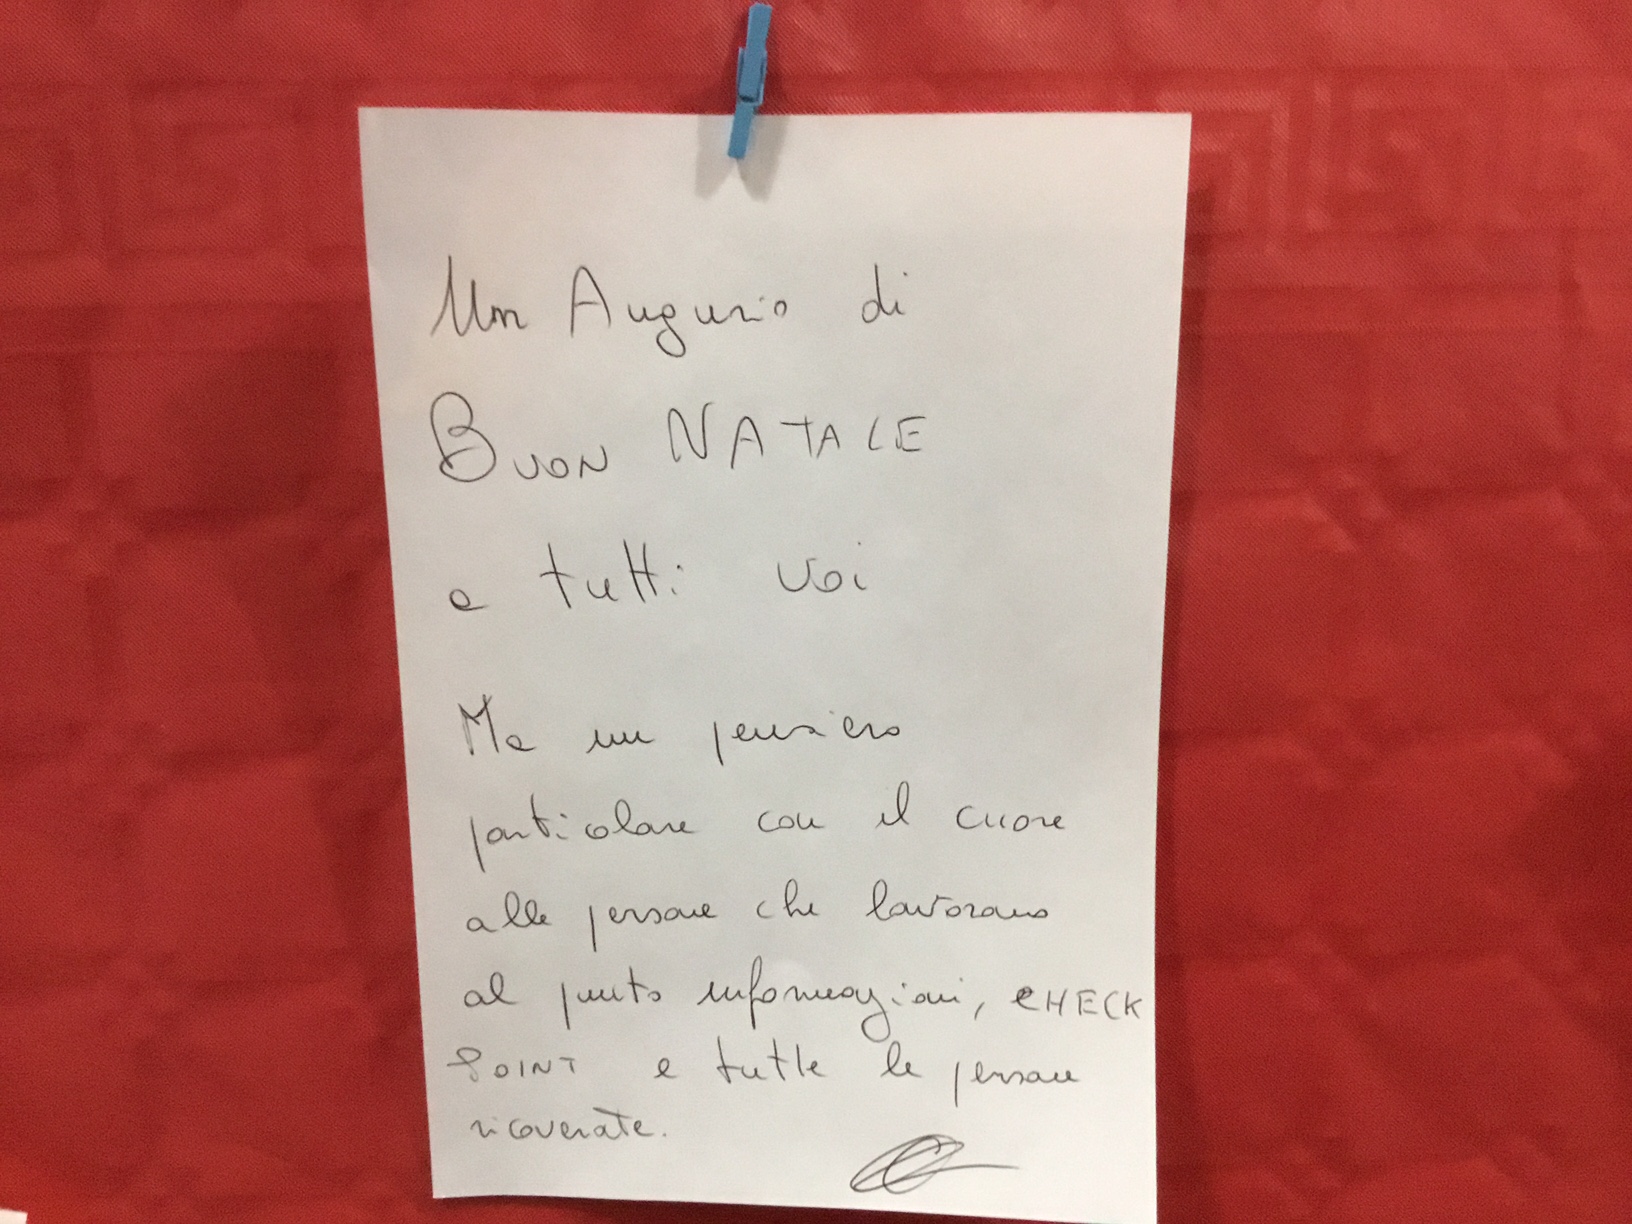 Un Augurio di
BUON NATALE
a tutti voi
Ma un pensiero
particolare con il cuore
alle persone che lavorano
al punto informazioni, CHECK
POINT e tutte le persone
ricoverate.